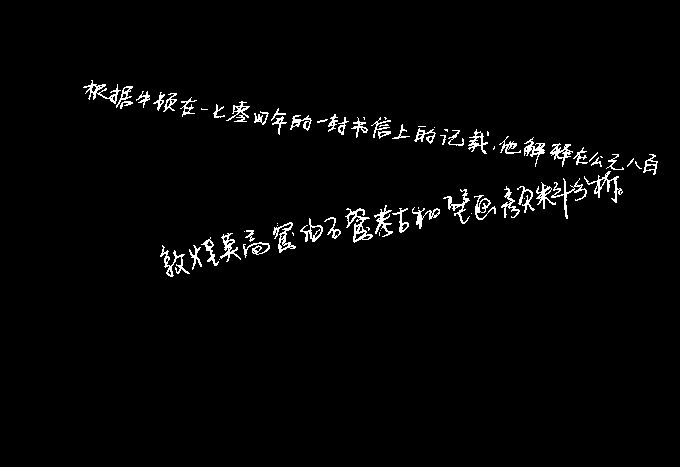 根据牛顿在一七零四年的一封书信上的记载,他解释在公元八百
敦煌莫高窟的石窟考古和壁画颜料分析。